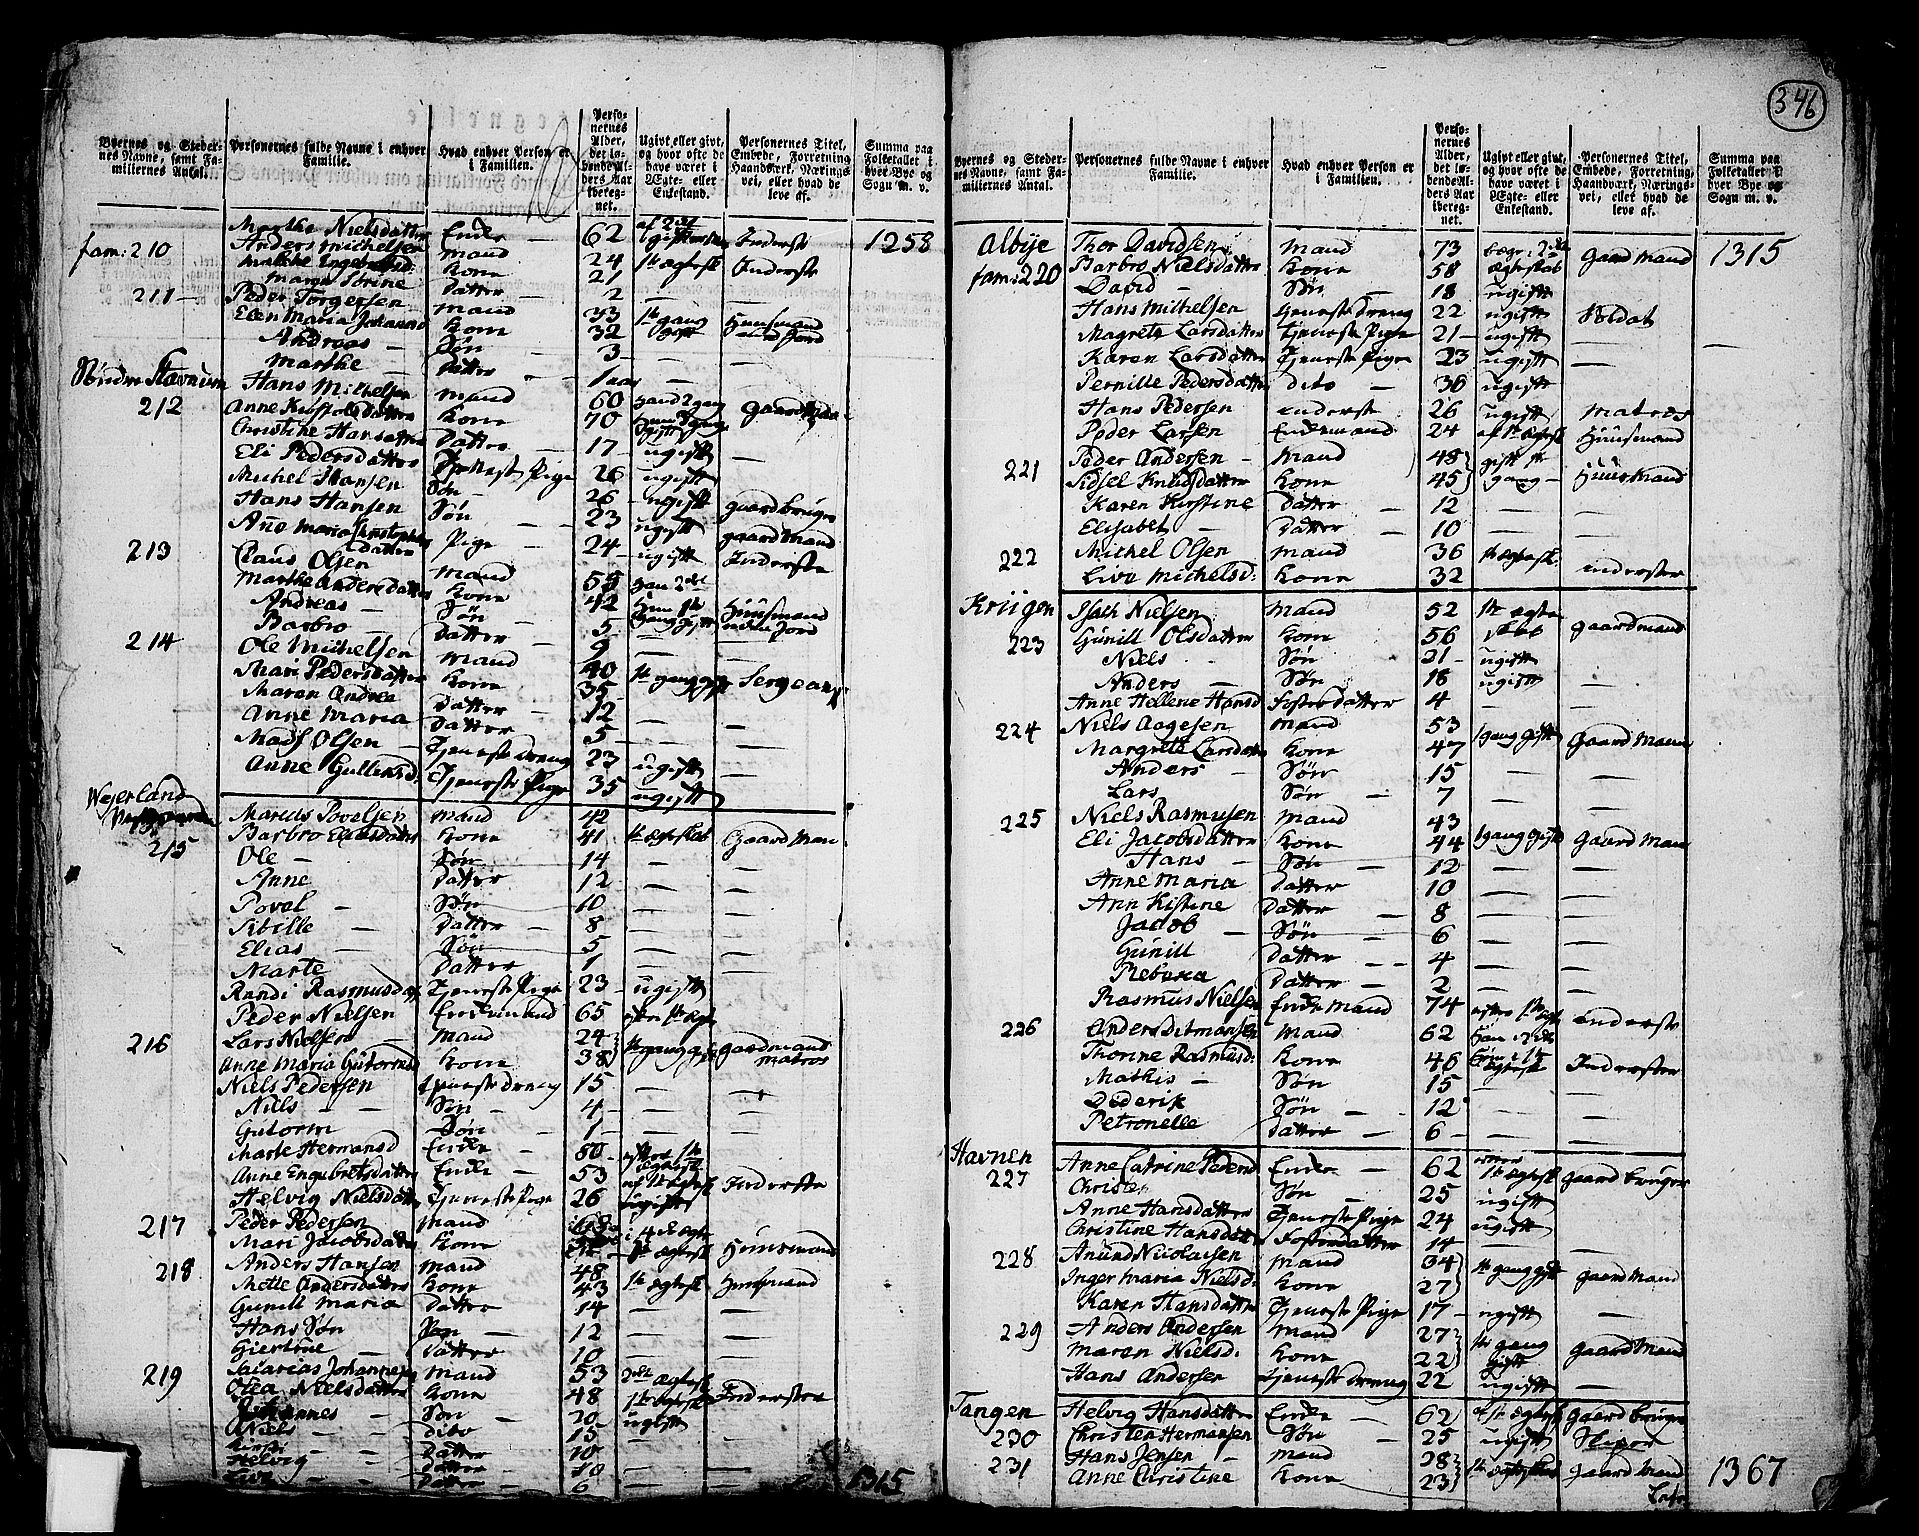 346
Byernes og Stedernes Navne, samt Familiernes Antal.
Personernes fulde Navne i enhver Familie.
Hvad enhver Person er i Familien.
Personernes Alder, det løbende Alders Aar iberegnet.
Ugivt eller givt, og hvor ofte de have været i Ægte- eller Enkestand.
Personernes Titel, Embede, Forretning, Haandværk, Næringsvei, eller hvad de leve af.
Summa paa Folketallet i hver Bye og Sogn m. v.
Marthe Nielsdatter Enke 62 Inderste 1258
fam: 210 Anders Michelsen mand 24 1te ægtesk Inderste
Kone 21
Maren Sørine Datter 2
211 Peder Torgersen mand 33 1te gang gift Huusmand
Elen Maria Johannsd Kone 32
Andreas Søn 3
Marthe Datter 1 aar
Søndre Stavnum
212 Hans Michelsen mand 60
Anne Kone 70
Christine Hansdatter Datter 17 ugift
Eli Pedersdatter Tjeneste Pige 26 ugift
Michel Hansen Søn 26 ugift gaardbruger
Hans Hansen Søn 23 ugift gaardmand
Ane Maria Christophersdatter Pige 24 ugift Inderste
213 Claus Olsen mand 55
Marthe Andersdatter Kone 42 Huusmand uden Jord
Andreas Søn 5
Barbro Datter 9
214 Ole Michelsen mand 40 1te gang gift Sergeant
Mari Pedersdatter Kone 35
Maren Andrea Datter 12
Anne Maria Datter 5
Mads Olsen Tjeneste Dreng 23 ugift
Anne Gullensd. Tjeneste Pige 35 ugift
Wejerland
215 Marcus Povelsen mand 42
Barbro Eliasdatter Kone 41 1te ægteskab Gaard Man
Ole Søn 14
Anne Datter 12
Povel Søn 10
Sibille Datter 8
Elias Søn 5
Marte Datter 1
Randi Rasmusdat Tjeneste Pige 23 ugift
Peder Nielsen Enkemand 65
216 Lars Nielsen mand 24 gaardmand matros
Anne Maria Gutormsd Kone 38
Niels Pedersen tjeneste dreng 15
Niels Søn 4
Gutorm Søn 1
Marte Hermansd Enke 80
Anne Engebretsdatter Enke 53 Inderste
Helvig Nielsdatter Tjeneste Pige 26 ugift
217 Peder Pedersen Mand
Mari Jacobsdatter Kone Huusmand
218 Anders Hansen Mand 48 1te ægtesk Huusmand
Mette Andersdatter Kone 43
Gunill Maria Datter 14
Hans Søn 12
Giertrue Datter 10
219 Sacarias Johannesen Mand 53 2det ægtesk
Olea Nielsdatter Kone 48 1te ægtesk Inderster
Johannes Søn 20 ugift
Niels Dito 15
Datter 10
Helvig Datter 10
Datter 6
1315
Byernes og Stedernes Navne, samt Familiernes Antal.
Personernes fulde Navne i enhver Familie.
Hvad enhver Person er i Familien.
Personernes Alder, det løbende Alders Aar iberegnet.
Ugivt eller givt, og hvor ofte de have været i Ægte- eller Enkestand.
Personernes Titel, Embede, Forretning, Haandværk, Næringsvei, eller hvad de leve af.
Summa paa Folketallet i hver Bye og Sogn m. v.
Albye Thor Davidsen Mand 73 Gaard mand 1315
fam: 220 Barbro Nielsdatter Kone 58 ægteskab
David Søn 18 ugift
Hans Michelsen tjeneste Dreng 22 ugift Soldat
Magrete Larsdatter Tjeneste Pige 21 ugift
Karen Larsdatter Tjeneste Pige 23 ugift
Pernille Pedersdatter Dito 36 ugift
Hans Pedersen enderste 26 ugift matros
Peder Larsen Enkemand 24 af 1te ægtesk Huusmand
221 Peder Andersen Mand 48 gift 1te gang Huusmand
Sidsel Knudsdatter Kone 45
Karen Kirstine Datter 12
Elisabet Datter 10
222 Michel Olsen Mand 36 1te ægtesk. inderster
Live Michelsd: Kone 32
Kriigen Isach Nielsen Mand 52 1te ægteskab gaardmand
223 Gunill Olsdatter Kone 56
Niels Søn 21 ugift
Anders Søn 18 ugift
Anne Hellene Hansd Fosterdatter 4
224 Niels Aagesen Mand 53 1 gang gift Gaard Mann
Margrete Larsdatter Kone 47
Anders Søn 15
Lars Søn 7
225 Niels Rasmusen Mand 43
Eli Jacobsdatter Kone 44 1 gang gift Gaard Man
Hans Søn 12
Anne Maria Datter 10
Ann Kistine Datter 8
Jacob Søn 6
Gunill Datter 4
Rebecca Datter 2
Rasmus Nielsen Enke Mand 74 enderste
226 Anders Ditmansen Mand 62
Thorine Rasmusd: Kone 46 Inderster
Mathis Søn 15
Diderik Søn 12
Petronelle Datter 6
Havnen
227 Anne Catrine Pedersd Enke 62 Gaard bruger
Christen Søn 25 ugift
Anne Hansdatter Tjeneste Pige 24 ugift
Christine Hansdatter Fosterdatter 14
228 Amund Nicolaisen Mand 34 1te gang gift gaard mand
Inger Maria Nielsd: Kone 27
Karen Hansdatter Tjeneste Pige 17 ugift
229 Anders Andersen Mand 27 1te gang gift Gaard Mand
Maren Nielsd. Kone 22
Hans Andersen tjeneste Dreng 22 ugift
Tangen Helvig Hansdatter Enke 62 Gaard bruger
230 Christen Hermansen Søn 25 ugift
231 Hans Jensen Mand 28 Gaard Mand
Anne Christine Kone 23
1367